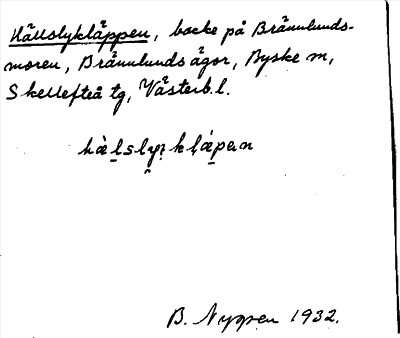 Hällslykläppen, backe på Brännlunds-
moren, Brännlunds ägor, Byske sn,
Skellefteå tg, Västerb. l.
B. Nyppen 1932.